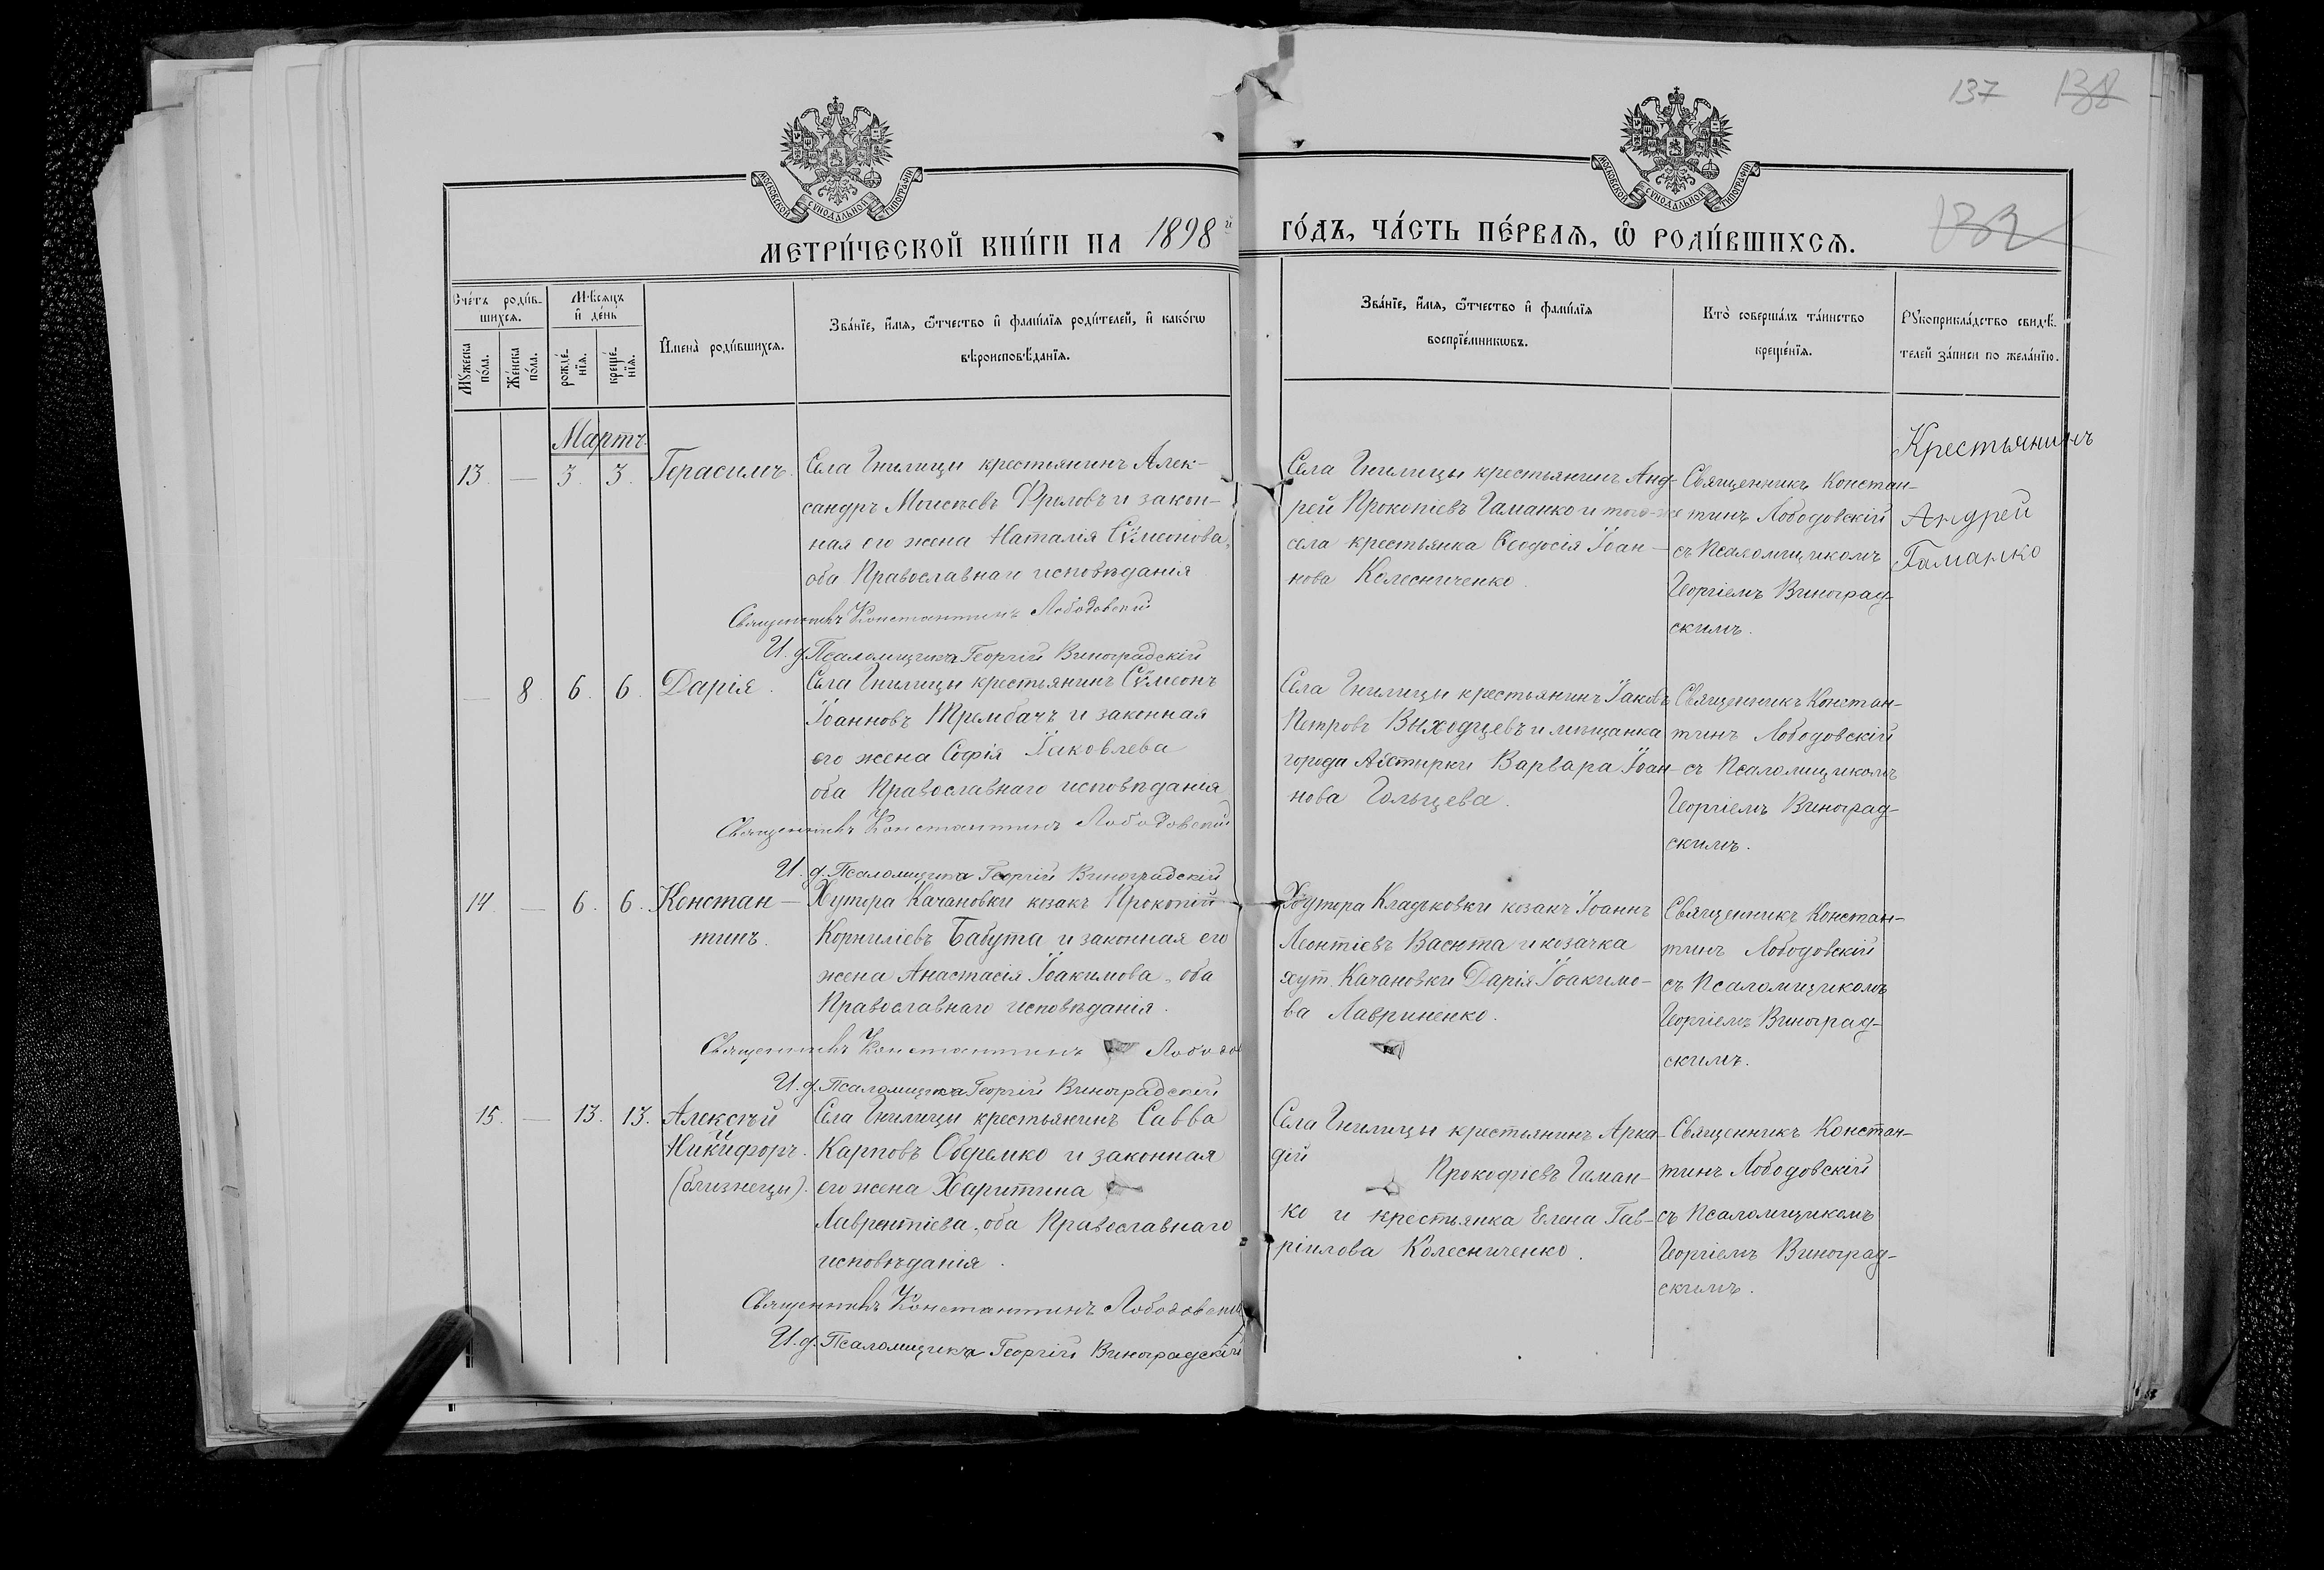 137 138
132
МОСКОВСКОЙ СѴНОДАЛЬНОЙ ТИПОГРАФІИ
МОСКОВСКОЙ СѴНОДАЛЬНОЙ ТИПОГРАФІИ
МЕТРИ́ЧЕСКОЙ КНИ́ГИ НА 1898й ГО́ДЪ, ЧА́СТЬ ПЕ́РВАѦ, Ѡ҆ РОДИ́ВШИХСѦ.
Сче́тъ роди́в-
шихсѧ.
Мꙋжеска по́ла.
Же́нска по́ла.
Мѣ́сѧцъ
и҆ де́нь
рожде́-
нїѧ.
креще́-
нїѧ.
И҆мена̀ роди́вшихсѧ.
Зва́нїе, и҆́мѧ, ѻ҆́тчество и҆ фами́лїѧ роди́телей, и҆ како́гѡ
вѣроисповѣ́данїѧ.
Зва́нїе, и҆́мѧ, ѻ҆́тчество и҆ фами́лїѧ
воспрїе́мникѡвъ.
Кто̀ соверша́лъ та́инство
креще́нїѧ.
Рꙋкоприкла́дство свидѣ́-
телей за́писи по жела́нїю.
Мартъ.
13. — 3. 3. Герасимъ.
Села Гнилицы крестьянинъ Алек-
сандръ Моисѣевъ Фроловъ и закон-
ная его жена Наталія Сѵмеонова,
оба Православнаго исповѣданія
Священникъ Константинъ Лободовскій
И. д. Псаломщика Георгій Виноградскій
Села Гнилицы крестьянинъ Анд-
рей Прокопіевъ Гаманко и того-же
села крестьянка Ѳеодосія Іоан-
нова Колесниченко.
Священникъ Констан-
тинъ Лободовскій
съ Псаломщикомъ
Георгіемъ Виноград-
скимъ.
Крестьянинъ
Андрей
Гаманко
— 8. 6. 6. Дарія.
Села Гнилицы крестьянинъ Сѵмеонъ
Іоанновъ Трембачъ и законная
его жена Софія Іаковлева
оба Православнаго исповѣданія
Священникъ Константинъ Лободовскій
И. д. Псаломщика Георгій Виноградскій
Села Гнилицы крестьянинъ Іаковъ
Петровъ Выходцевъ и мѣщанка
города Ахтырки Варвара Іоан-
нова Гольцева.
Священникъ Констан-
тинъ Лободовскій
съ Псаломщикомъ
Георгіемъ Виноград-
скимъ.
14. — 6. 6. Констан-
тинъ.
Хутора Качановки козакъ Прокопій
Корниліевъ Бабута и законная его
жена Анастасія Іоакимова, оба
Православнаго исповѣданія.
Священникъ Константинъ Лободо
И. д. Псаломщика Георгій Виноградскій
Хутора Кладьковки козакъ Іоаннъ
Леонтіевъ и козачка
хут. Качановки Дарія Іоакимо-
ва Лавриненко.
Священникъ Констан-
тинъ Лободовскій
съ Псаломщикомъ
Георгіемъ Виноград-
скимъ.
15. — 13. 13. Алексѣй
Никифоръ.
(близнецы).
Села Гнилицы крестьянинъ Савва
Карповъ Оберемко и законная
его жена Харитина
Лаврентіева, оба Православнаго
исповѣданія.
Священникъ Константинъ Лободовскій
И. д. Псаломщика Георгій Виноградскій
Села Гнилицы крестьянинъ Арка-
дій
Прокофіевъ Гаман-
ко и крестьянка Елена Гав-
ріилова Колесниченко.
Священникъ Констан-
тинъ Лободовскій
съ Псаломщикомъ
Георгіемъ Виноград-
скимъ.